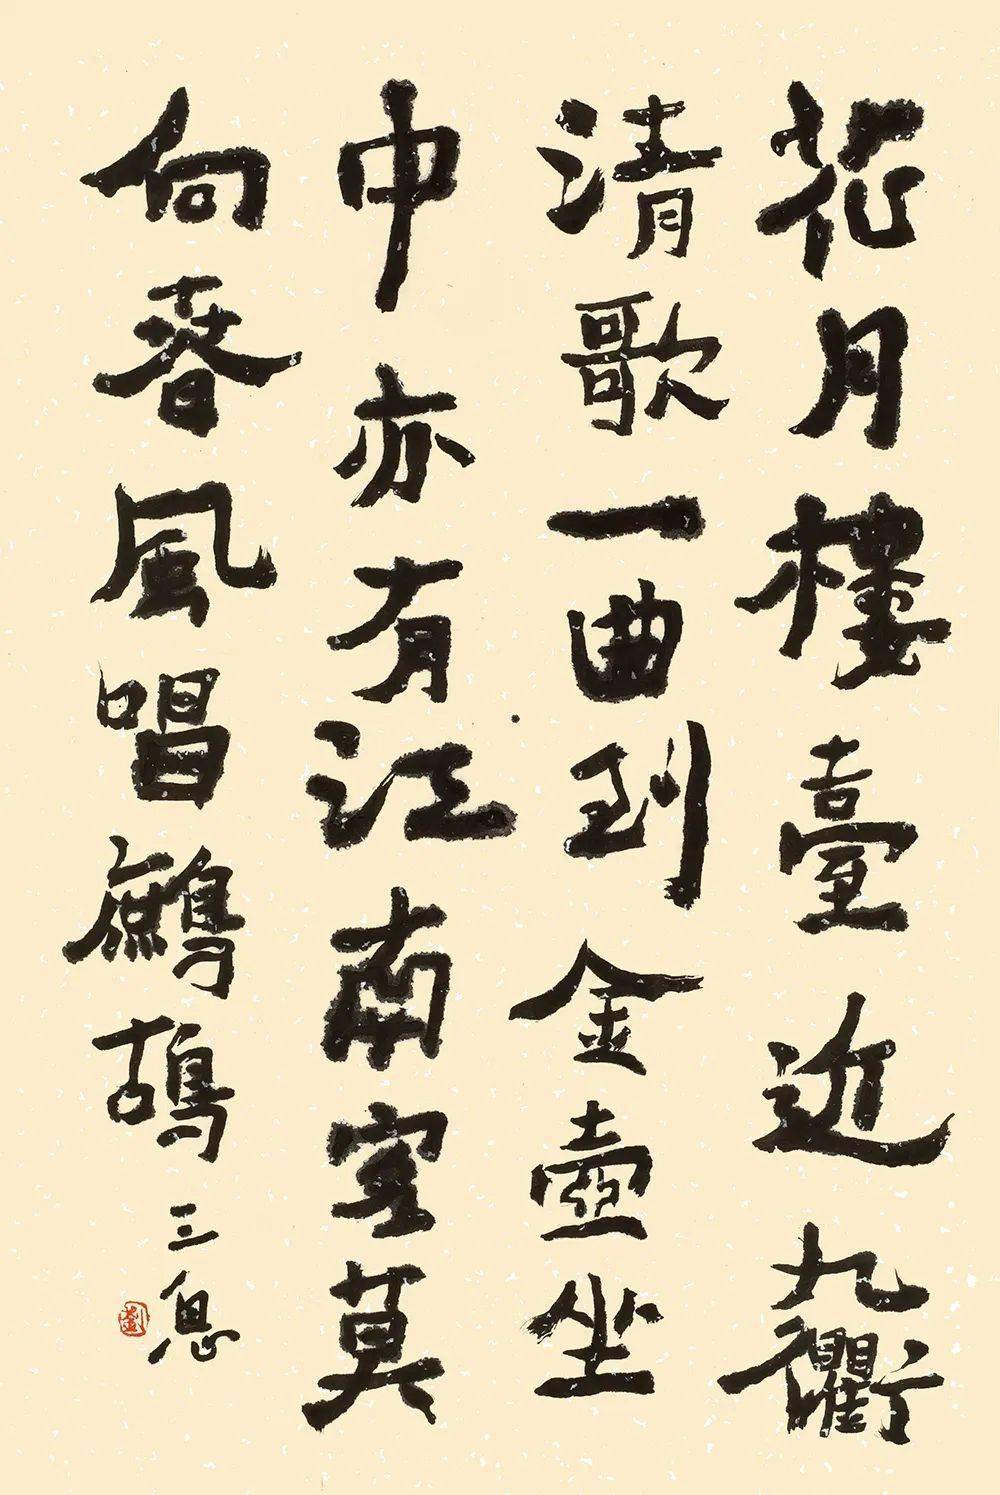 花月樓臺近九衢
清歌一曲到金壺坐
中亦有江南客莫
向春風唱鷓鴣 三息
劉